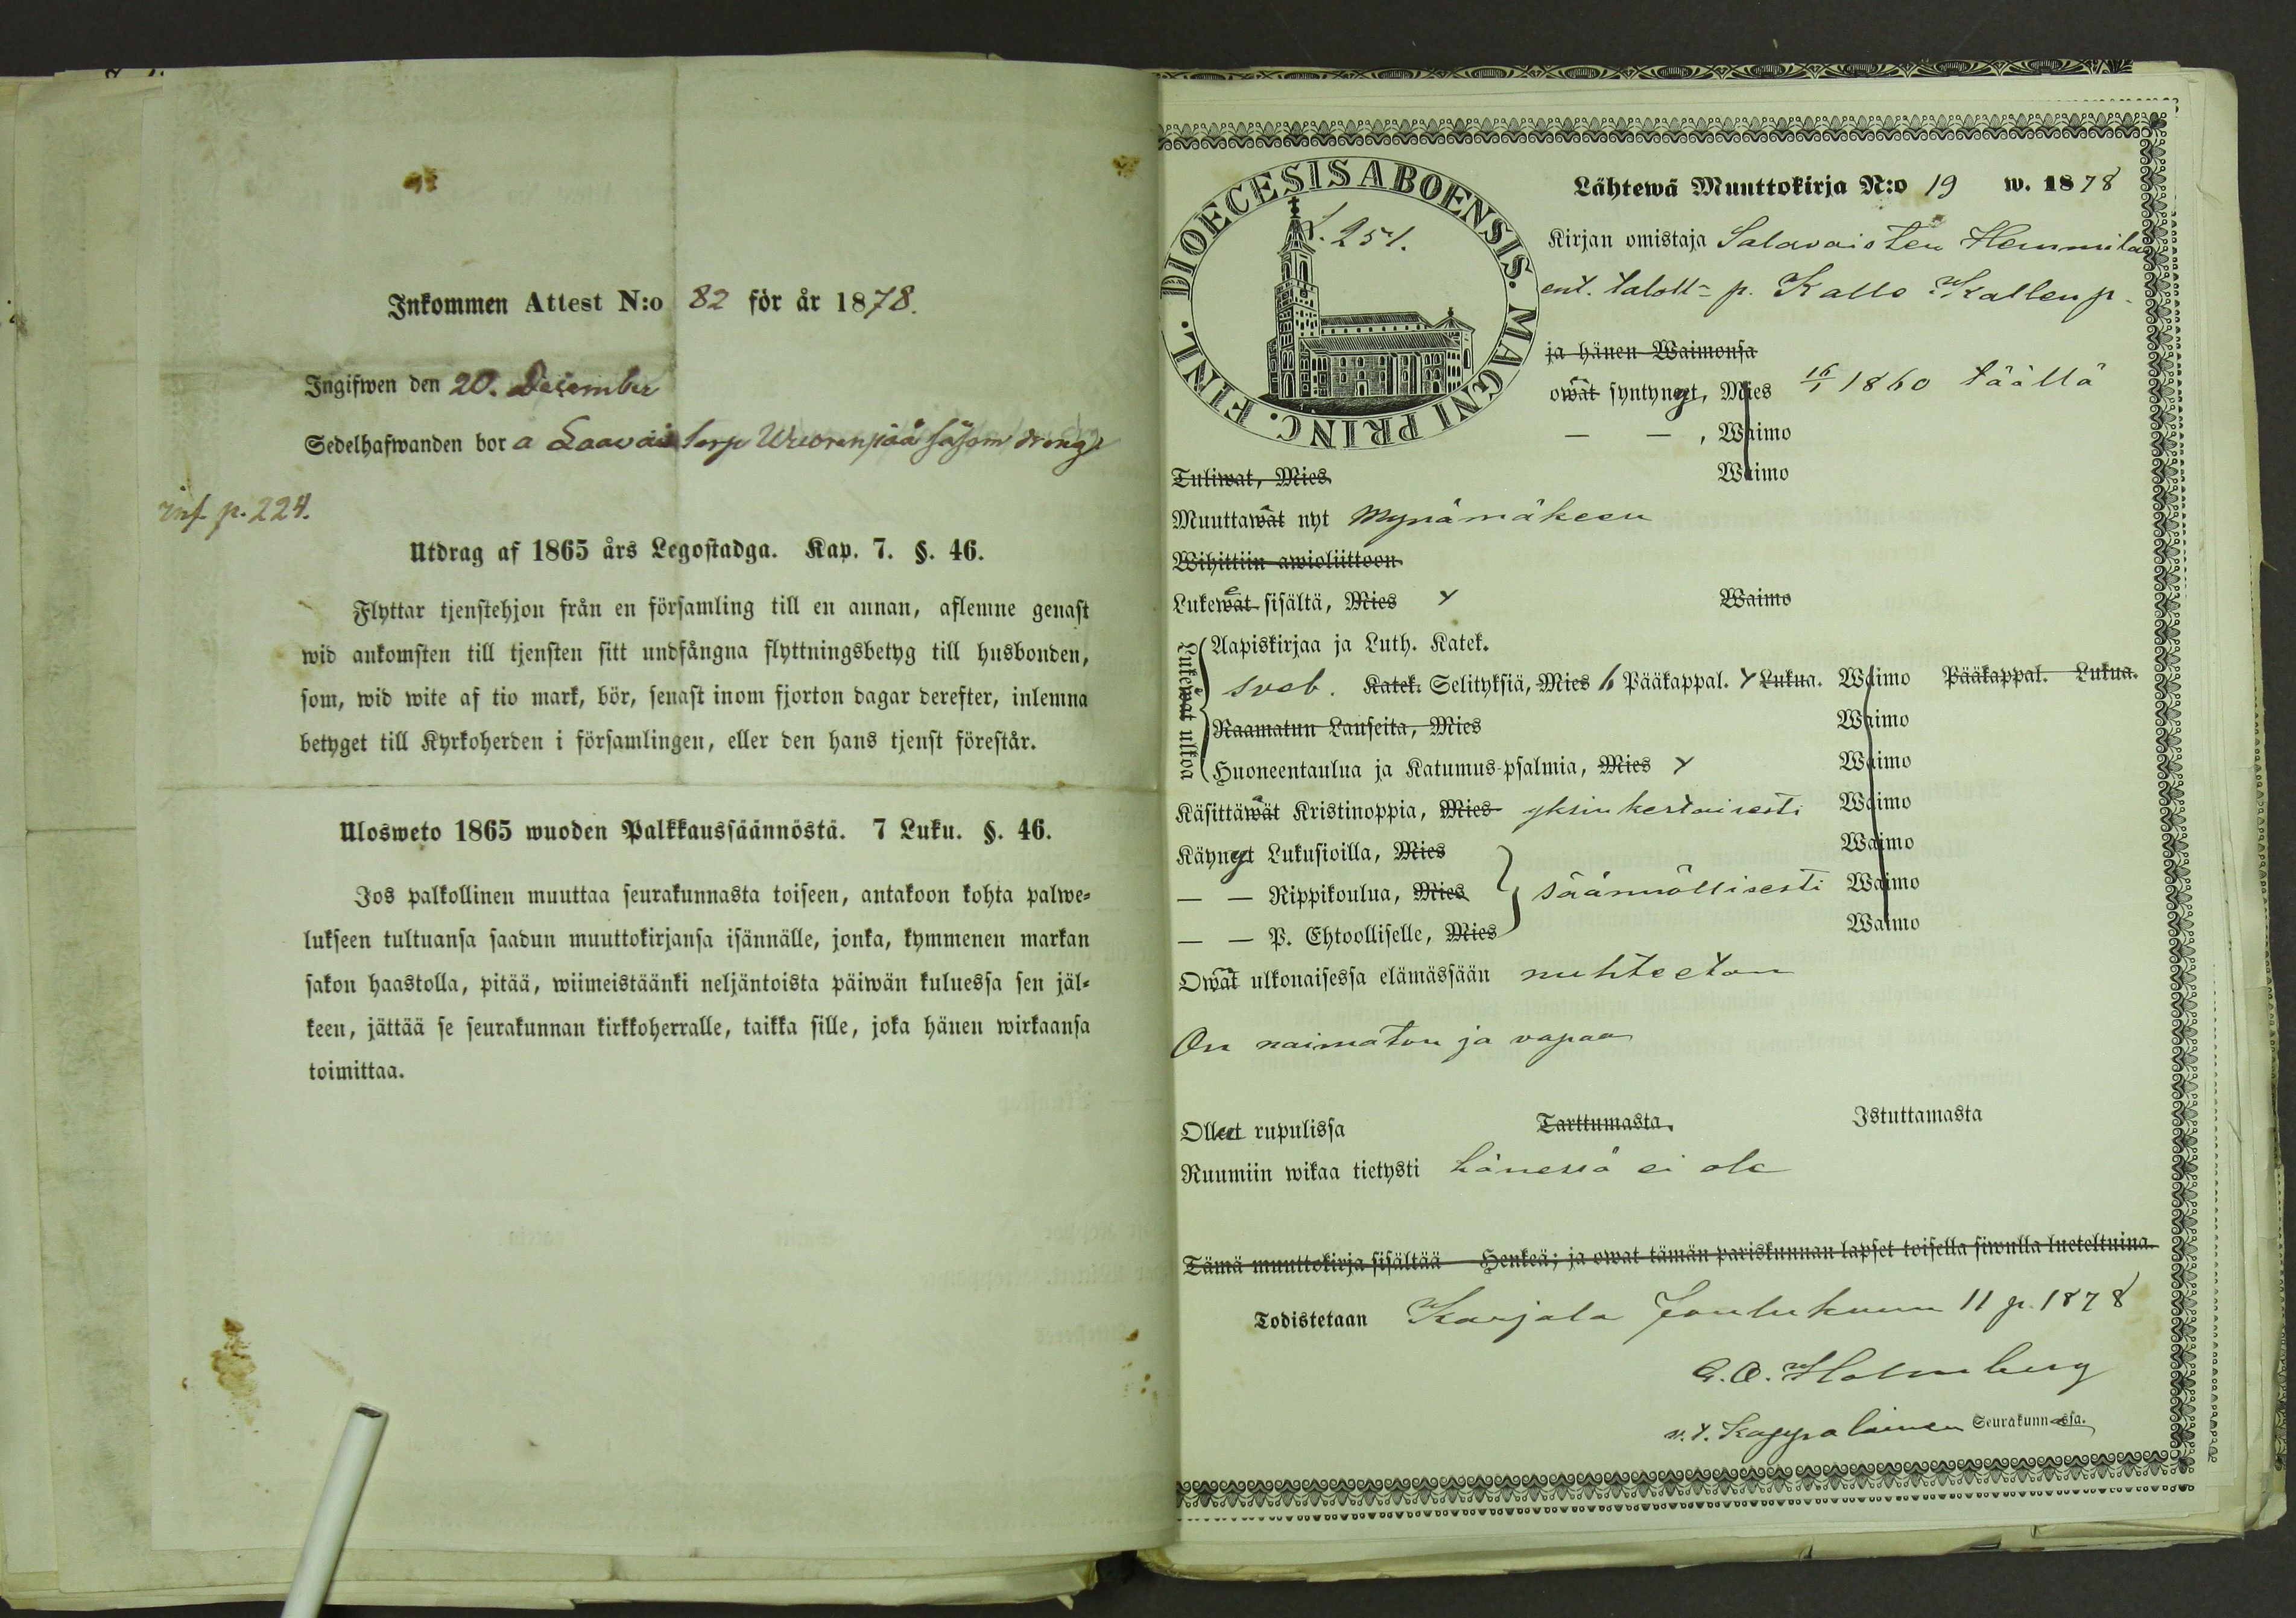 Inkommen Attest N:o 82 för år 1878.
Ingifwen den 20. December
Sedelhafwanden bor a Laavais torp Wuorenpää såsom dräng
inf. p. 224.
Utdrag af 1865 års Legostadga. Kap. 7. §. 46.
Flyttar tjenstehjon från en församling till en annan, aflemne genast
wid ankomsten till tjensten sitt undfångna flyttningsbetyg till husbonden,
som, wid wite af tio mark, bör, senast inom fjorton dagar derefter, inlemna
betyget till Kyrkoherden i församlingen, eller den hans tjenst förestår.
Ulosweto 1865 wuoden Palkkaussäännöstä. 7 Luku. §. 46.
Jos palkollinen muuttaa seurakunnasta toiseen, antakoon kohta palwe-
lukseen tultuansa saadun muuttokirjansa isännälle, jonka, kymmenen markan
sakon haastolla, pitää, wiimeistäänki neljäntoista päiwän kuluessa sen jäl-
keen, jättää se seurakunnan kirkkoherralle, taikka sille, joka hänen wirkaansa
toimittaa.
DIOECESIS ABOENSIS. MAGNI PRINC. FINL.
S. 251.
Lähtewä Muuttokirja N:o 19 w. 1878
Kirjan omistaja Salavaisten Hemmilä
ent. taloll- p. Kalle Kallenp.
ja hänen Waimonsa
owat syntynyt, Mies 16/1 1860 täällä
— — , Waimo
Tuliwat, Mies Waimo
Muuttawat nyt Mynämäkeen
Wihittiin awioliittoon
Lukewat sisältä, Mies Y Waimo
Lukewat ulkoa
Aapiskirjaa ja Luth. Katek.
Sveb. Katek. Selityksiä, Mies 6 Pääkappal. Y Lukua. Waimo Pääkappal. Lukua.
Raamatun Lauseita, Mies Waimo
Huoneentaulua ja Katumus-psalmia, Mies Y Waimo
Käsittäwät Kristinoppia, Mies yksinkertaisesti Waimo
Käynyt Lukusioilla, Mies Waimo
— — Rippikoulua, Mies säännöllisesti Waimo
— — P. Ehtoolliselle, Mies Waimo
Owat ulkonaisessa elämässään nuhteeton
On naimaton ja vapaa
Olleet rupulissa Tarttumasta Istuttamasta
Ruumiin wikaa tietysti hänessä ei ole
Tämä muuttokirja sisältää Henkeä; ja owat tämän pariskunnan lapset toisella siwulla lueteltuina.
Todistetaan Karjala Joulukuun 11 p. 1878
G. O. Holmberg
v. t. Kappalainen Seurakunnassa.